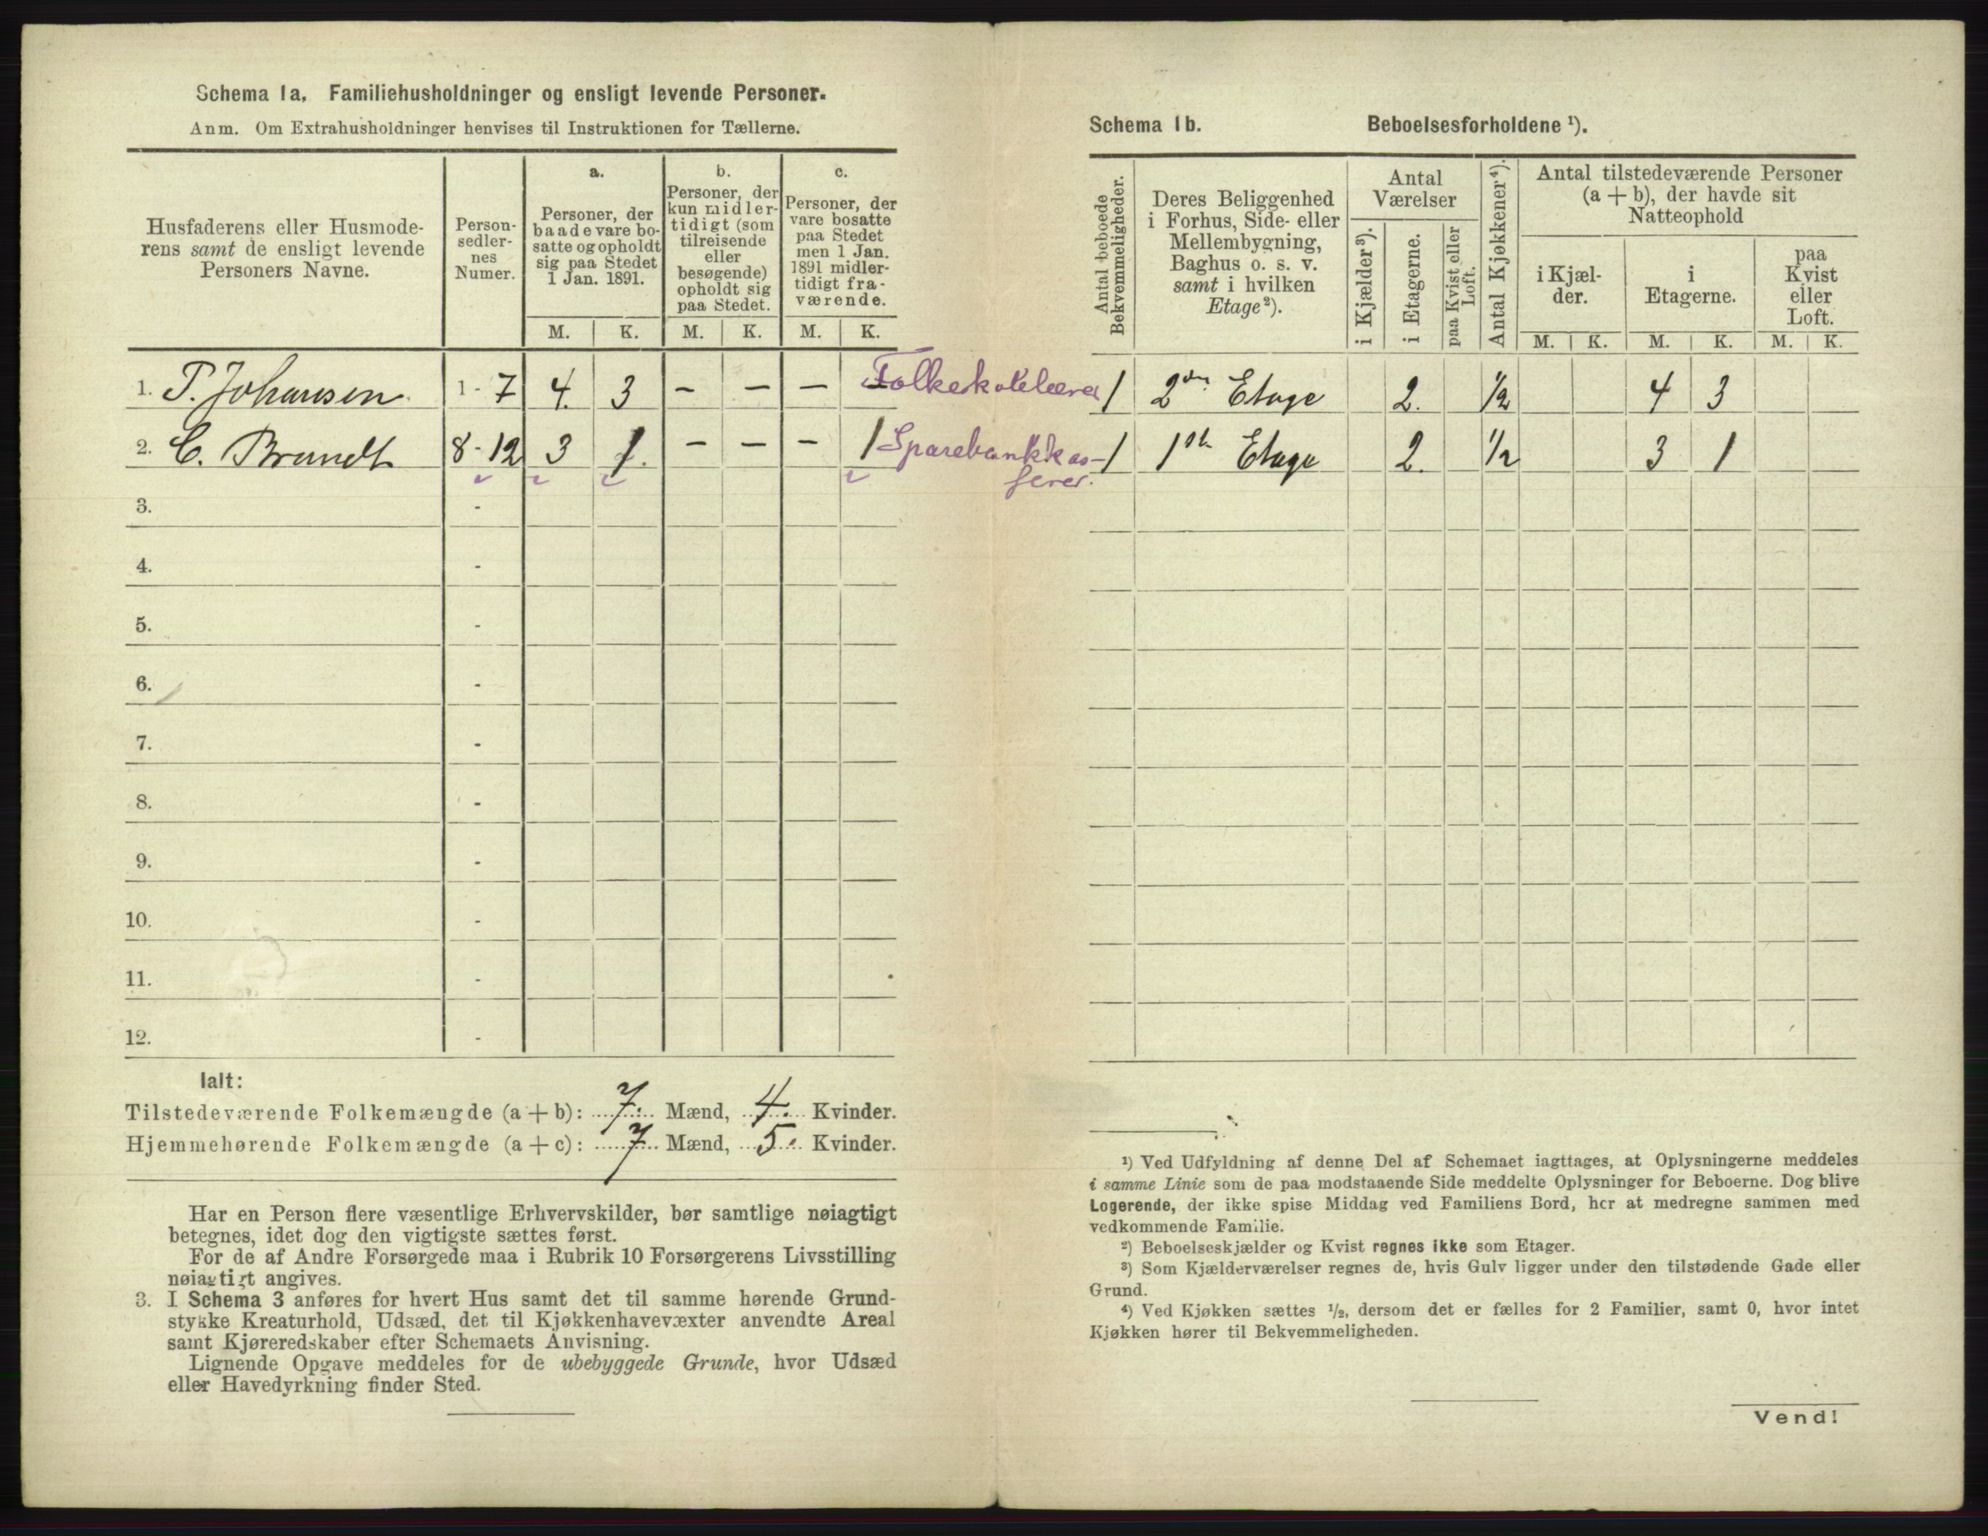 Schema 1a. Familiehusholdninger og ensligt levende Personer.
Anm. Om Extrahusholdninger henvises til Instruktionen for Tællerne.
Husfaderens eller Husmode-
rens samt de ensligt levende
Personers Navne.
Person-
sedler-
nes
Numer.
a.
Personer, der
baade vare bo-
satte og opholdt
sig paa Stedet
1 Jan. 1891.
b.
Personer, der
kun midler-
tidigt (som
tilreisende
eller
besøgende)
opholdt sig
paa Stedet.
c.
Personer, der
vare bosatte
paa Stedet
men 1 Jan.
1891 midler-
tidigt fra-
værende.
M. K. M. K. M. K.
1. P. Johansen 1 - 7 4. 3 - - - Folkeskolelærer
2. C. Brandt 8 - 12 3 1. - - - 1 Sparebankkas-
serer.
3. -
4. -
5. -
6. -
7. -
8. -
9. -
10. -
11. -
12. -
Ialt:
Tilstedeværende Folkemængde (a + b): 7. Mænd, 4. Kvinder.
Hjemmehørende Folkemængde (a + c): 7 Mænd, 5. Kvinder.
Har en Person flere væsentlige Erhvervskilder, bør samtlige nøiagtigt
betegnes, idet dog den vigtigste sættes først.
For de af Andre Forsørgede maa i Rubrik 10 Forsørgerens Livsstilling
nøiagtigt angives.
3. I Schema 3 anføres for hvert Hus samt det til samme hørende Grund-
stykke Kreaturhold, Udsæd, det til Kjøkkenhavevæxter anvendte Areal
samt Kjøreredskaber efter Schemaets Anvisning.
Lignende Opgave meddeles for de ubebyggede Grunde, hvor Udsæd
eller Havedyrkning finder Sted.
Schema 1b. Beboelsesforholdene ¹).
Antal beboede
Bekvemmeligheder.
Deres Beliggenhed
i Forhus, Side- eller
Mellembygning,
Baghus o. s. v.
samt i hvilken
Etage ²).
Antal
Værelser
i Kjælder ³).
i Etagerne.
paa Kvist eller
Loft.
Antal Kjøkkener ⁴).
Antal tilstedeværende Personer
(a + b), der havde sit
Natteophold
i Kjæl-
der.
i
Etagerne.
paa
Kvist
eller
Loft.
M. K. M. K. M. K.
1 2den Etage 2. ½ 4 3
1 1ste Etage 2. ½ 3 1
¹) Ved Udfyldning af denne Del af Schemaet iagttages, at Oplysningerne meddeles
i samme Linie som de paa modstaaende Side meddelte Oplysninger for Beboerne. Dog blive
Logerende, der ikke spise Middag ved Familiens Bord, her at medregne sammen med
vedkommende Familie.
²) Beboelseskjælder og Kvist regnes ikke som Etager.
³) Som Kjælderværelser regnes de, hvis Gulv ligger under den tilstødende Gade eller
Grund.
⁴) Ved Kjøkken sættes ½, dersom det er fælles for 2 Familier, samt 0, hvor intet
Kjøkken hører til Bekvemmeligheden.
Vend!